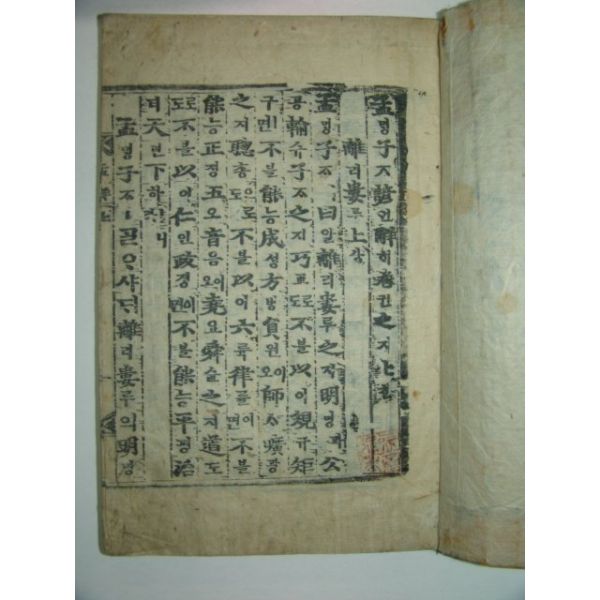 孟ᄆᆡᆼ子ᄌᆞ諺언解ᄒᆡ卷권之지
離리婁루上샹
孟ᄆᆡᆼ子ᄌᆞㅣ曰왈離리婁루之지明명과公
공輸슈子ᄌᆞ之지巧교로도不불以이規규矩
구ㅣ면不불能능成셩方방員원이오師ᄉᆞ曠광
之지聰총으로도不불以이六륙律률이면不불
能능正졍五오音음이오堯요舜슌之지道도
로도不불以이仁인政졍이면不불能능平평治
티天텬下하ㅣ니라
孟ᄆᆡᆼ子ᄌᆞㅣᄀᆞᆯᄋᆞ샤ᄃᆡ離리婁루의明명